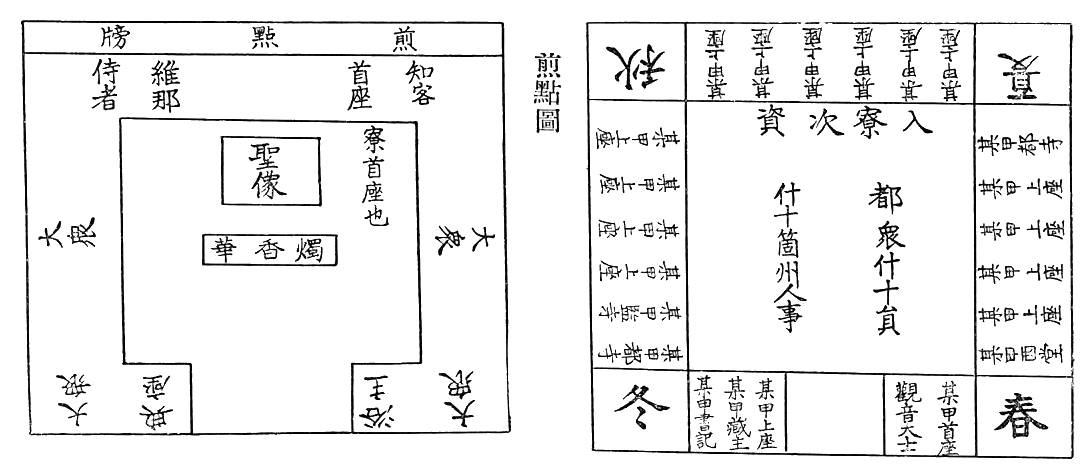 夏
某甲上座
某甲上座
某甲上座
某甲上座
某甲上座
某甲上座
秋
入寮次資
某甲都寺
某甲上座
某甲上座
某甲上座
某甲上座
某甲西堂
都衆什十員
什十箇州人事
某甲上座
某甲上座
某甲上座
某甲上座
某甲監寺
某甲都寺
春
某甲首座
觀音大士
某甲上座
某甲藏主
某甲書記
冬
煎點圖
煎點牓
知客
首座
維那
侍者
寮首座也
聖像
燭香華
大衆
大衆
大衆
浴主
典座
大衆